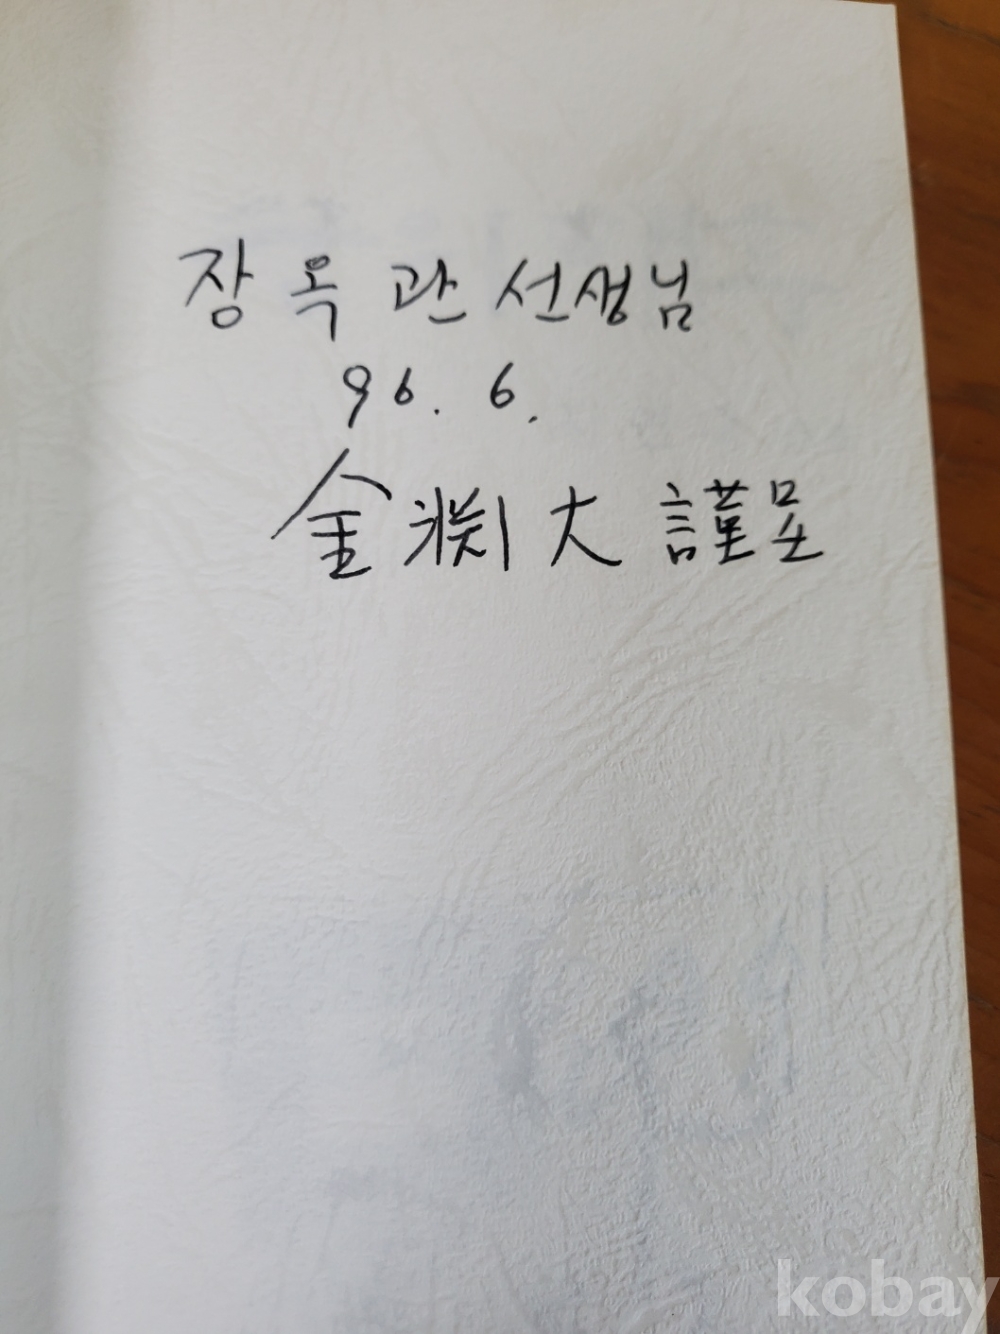 장 옥 관 선생님
96. 6.
金 渊 大 謹呈
kobay